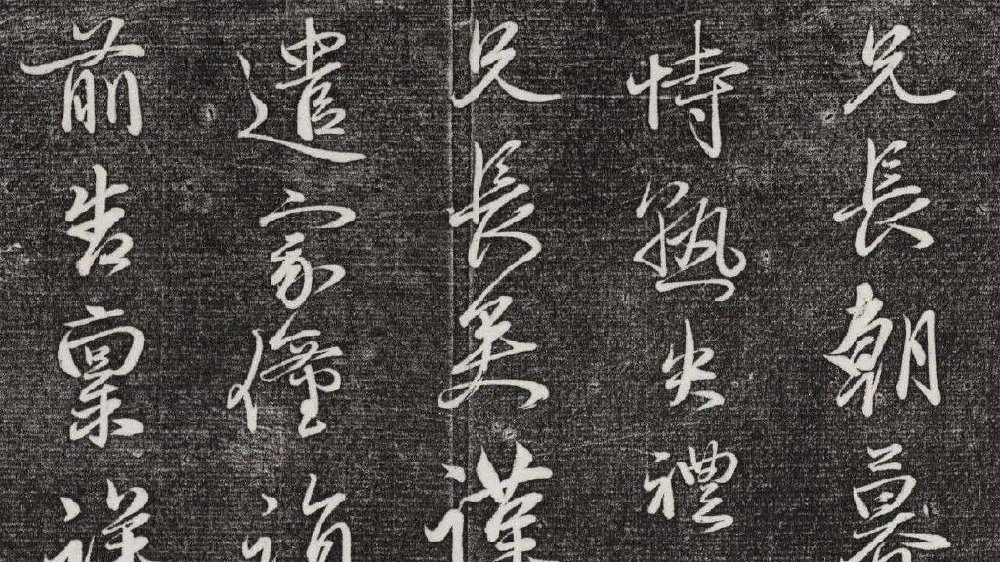 兄長朝暮
恃熟失禮
兄長矣謹
遣家僮詣
前告稟